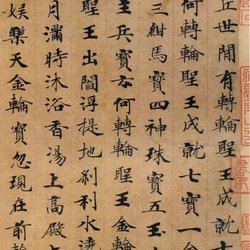 丘世間有轉輪聖王成就七寶一
三紺馬寶四神珠寶五玉
主兵寶云何轉輪聖王金輪
聖王出閻浮提地剎利水澆
月滿時沐浴香湯上高殿上
娛樂天金輪寶忽現在前輪